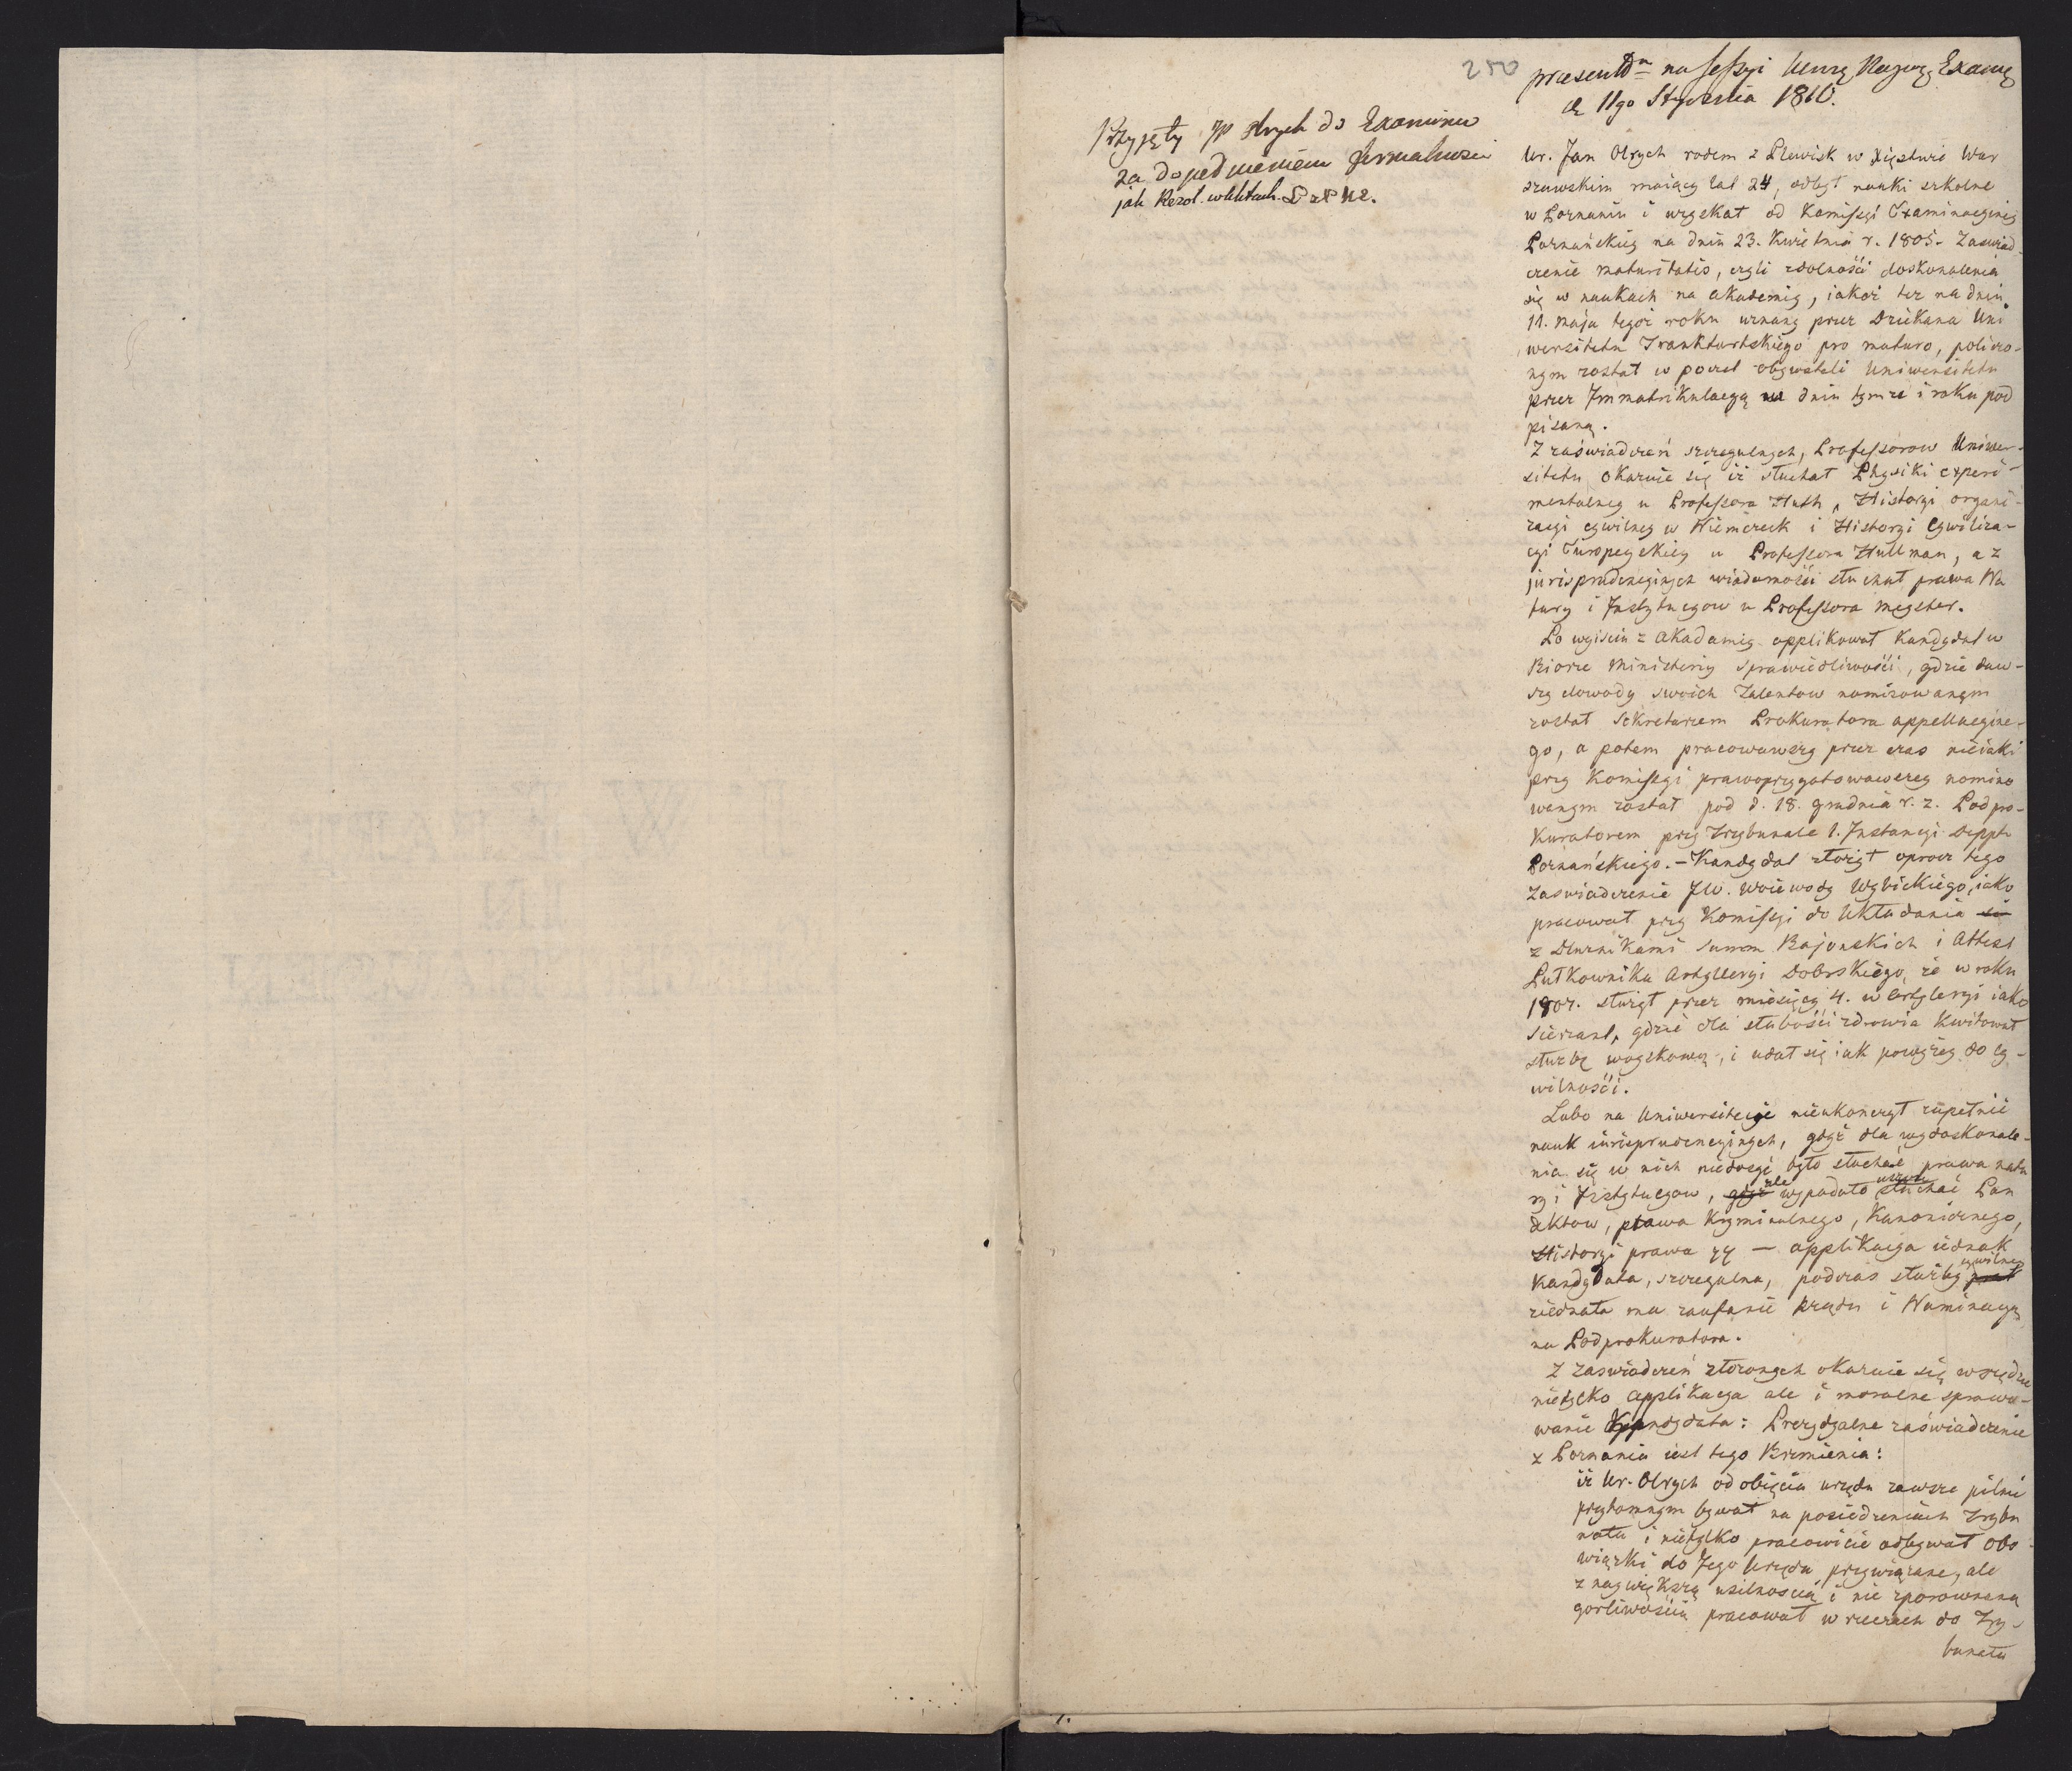 250
praesentm na sessyi
d. 11go Stycznia 1810.
Przyjęty JP Olrych do Examinu
za dopełnieniem formalności
jak Rezol. w aktach
Ur. Jan Olrych rodem z Plewisk w Xięstwie War
szawskim maiący lat 24, odbył nauki szkolne
w Poznaniu i uzyskał od Komissyi Examinacyiney
Poznańskiey na dniu 23. Kwietnia r. 1805. Zaswiad-
czenie maturitatis, czyli zdolności doskonalenia
się w naukach na akademię, iakoż też na dniu
11. Maja tegoż roku uznany przez Dziekana Uni
wersitetu Frankfurtskiego pro maturo, policzo-
nym został w poczet obywateli Uniwersitetu
przez Immatrikulacyą na dniu tymże i roku pod
pisaną.
Z zaświadczeń szczegulnych, Professorow Uniwer-
sitetu okazuie się iż słuchał Physiki experi-
mentalney u Professora Huth, Historyi organi-
zacyi cywilney w Niemczech i Historyi Cywiliza-
cyi Europeyskiey u Professora Hullman, a z
jurisprudencyinych wiadomości słuchał prawa Na
tury i Instytucyow u Professora Meyster.
Po wyisciu z akademiy applikował Kandydat w
Biorze Ministeriy Sprawiedliwości, gdzie daw-
szy dowody swoich Talentow nominowanym
został Sekretarzem Prokuratora appellacyine-
go, a potem pracowawszy przez czas nieiaki
przy Komissyi prawoprzygotowawczey nomino
wanym został pod d. 18. grudnia r. z. Podpro-
kuratorem przy Trybunale 1. Instancyi Deppte
Poznańskiego. - Kandydat złożył oprocz tego
Zaswiadczenie JW. Woiewody Wybickiego, iako
pracował przy Komissyi do Układania
z Dłuznikami summ Bajonskich i Attest
Pułkownika Artylleryi Dobrskiego, że w roku
1807. służył przez miesięcy 4. w Artyleryi iako
Sierzant, gdzie dla słabości zdrowia kwitował
służbę woyskową, i udał się iak powyżey do cy-
wilności.
Lubo na Uniwersitecie nieukonczył zupełnie
nauk iurisprudencyinych, gdyż dla wydoskonale-
nia się w nich niedosyć było słuchać prawa natu
ry i Instytucyow, gdyż ale wypadało słuchać Pan
dektow, prawa Kryminalnego, Kanonicznego,
Historyi prawa — applikacya iednak
Kandydata, szczegulna, podczas służby cywilney
ziednała mu zaufanie Rządu i Nominacyą
na Podprokuratora.
Z zaswiadczeń złozonych okazuie się wszędzie
nietylko applikacya ale i moralne sprawo-
wanie Kandydata: Prezydyalne zaświadczenie
z Poznania iest tego Brzmienia:
iż Ur. Olrych od obięcia urzędu zawsze pilnie
przytomnym bywał na posiedzeniach Trybu
nału i nietylko pracowicie odbywał obo-
wiązki do Jego Urzędu przywiązane, ale
z naywiększą usilnoscią i nie zporownaną
gorliwością pracował w rzeczach do Try-
bunału